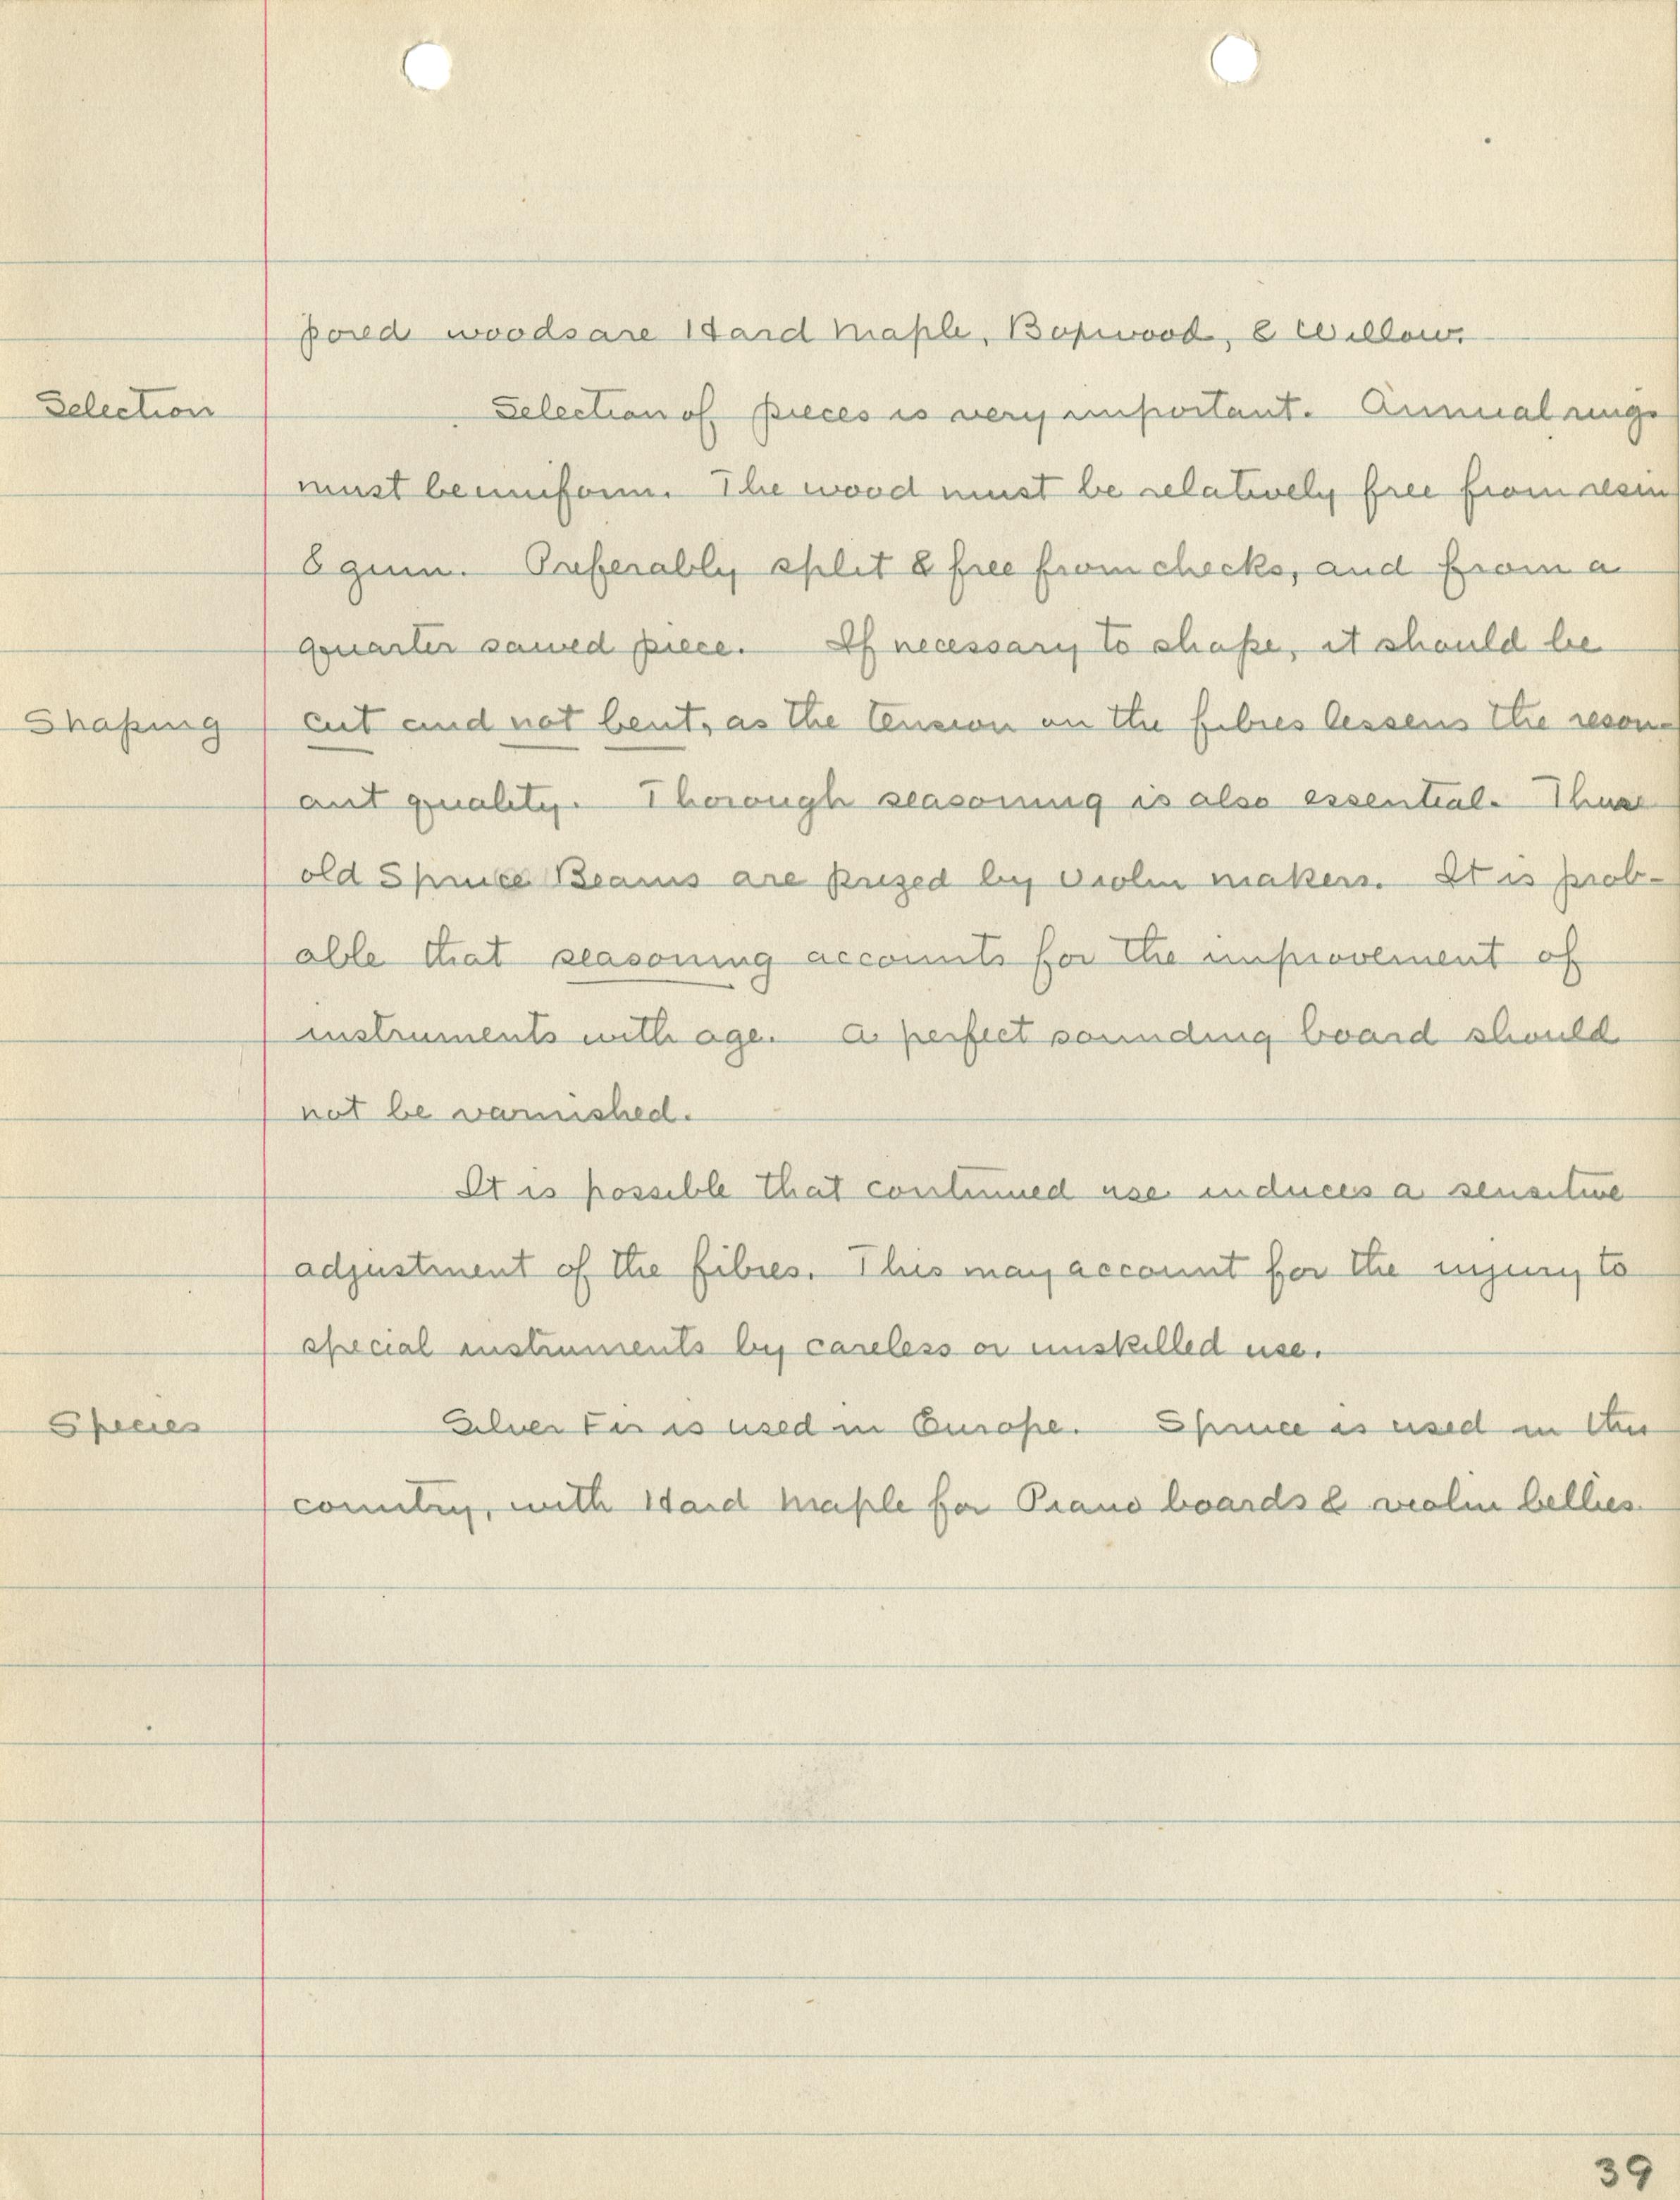 pored woods are Hard Maple, Boxwood, & Willow.
Selection
Selection of pieces is very important. Annual rings
must be uniform. The wood must be relatively free from resin
& gum. Preferably split & free from checks, and from a
quarter sawed piece. If necessary to shape, it should be
Shaping
cut and not bent, as the tension on the fibres lessens the reson-
ant quality. Thorough seasoning is also essential. Thus
old Spruce Beams are prized by Violin makers. It is prob-
able that seasoning accounts for the improvement of
instruments with age. A perfect sounding board should
not be varnished.
It is possible that continued use induces a sensitive
adjustment of the fibres. This may account for the injury to
special instruments by careless or unskilled use.
Species
Silver Fir is used in Europe. Spruce is used in this
country, with Hard Maple for Piano boards & violin bellies.
39